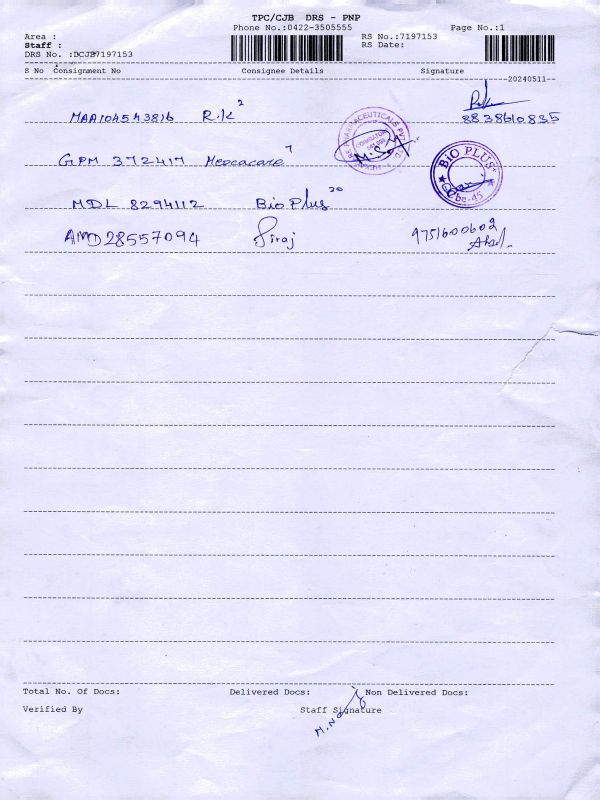 TPC/CJB DRS - PNP
Phone No.:0422-3505555 Page No.:1
Area :
Staff : RS No.:7197153
DRS No. :DCJB7197153 RS Date:
S No Consignment No Consignee Details Signature
20240511
MAA104543816 R.K 2 8838610835
GPM 372417 7
MDL 8294112 Bio Plus 20
BIO PLUS Cbe-45
AMD28557094 Siraj 9751600602
Total No. Of Docs: Delivered Docs: Non Delivered Docs:
Verified By Staff Signature